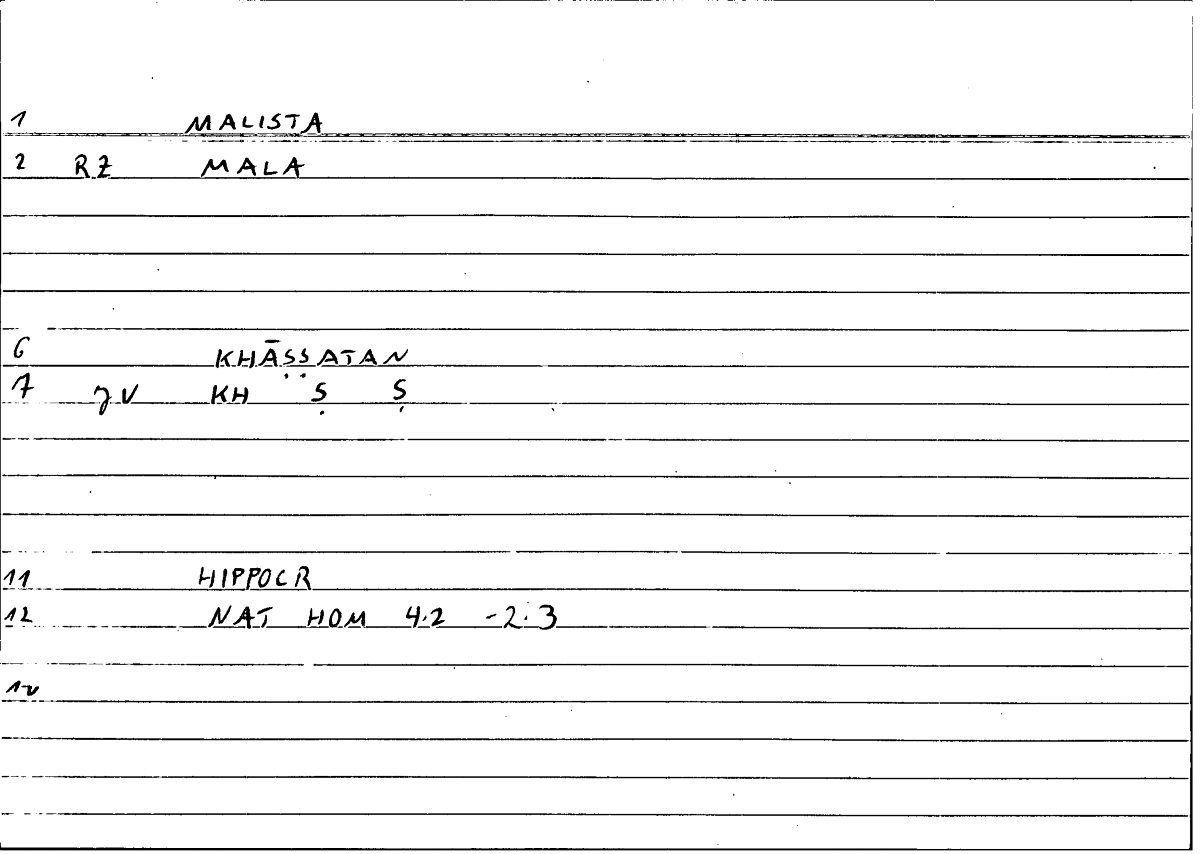 1 MALISTA
2 RZ MALA
6 KHĀSSATAN
7 JV KH ¨ Ṣ Ṣ
11 HIPPOCR
12 NAT HOM 4.2 -2.3